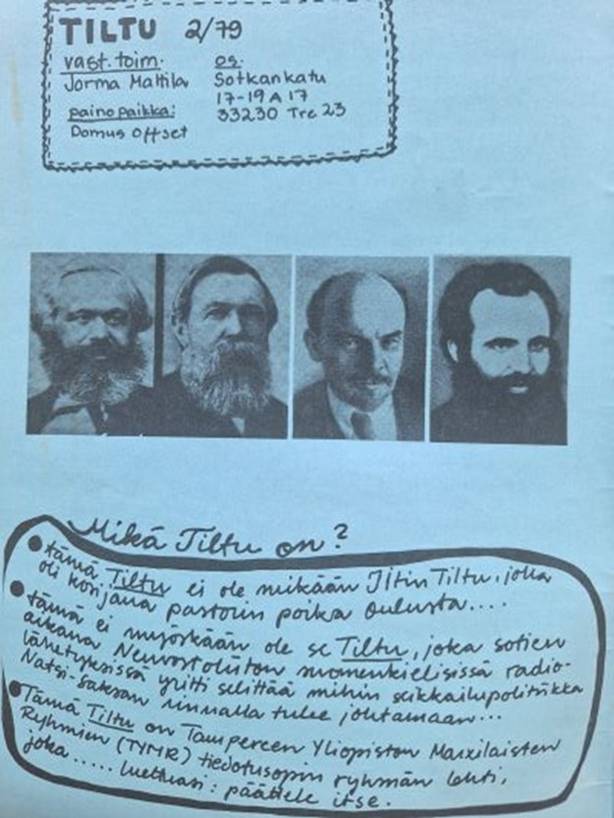 TILTU 2/79
vast.toim. os.
Jorma Mattila Sotkankatu
17-19 A 17
painopaikka: 33230 Tre 23
Domus Offset
Mikä Tiltu on?
• tämä Tiltu ei ole mikään Iltin Tiltu, joka
oli korjana pastorin poika Oulusta....
• tämä ei myöskään ole se Tiltu, joka sotien
aikana Neuvostoliiton suomenkielisissä radio-
lähetyksissä yritti selittää mihin seikkailupolitiikka
Natsi-Saksan rinnalla tulee johtamaan...
• Tämä Tiltu on Tampereen Yliopiston Marxilaisten
Ryhmien (TYMR) tiedotusopin ryhmän lehti,
joka..... luettuasi: päättele itse.